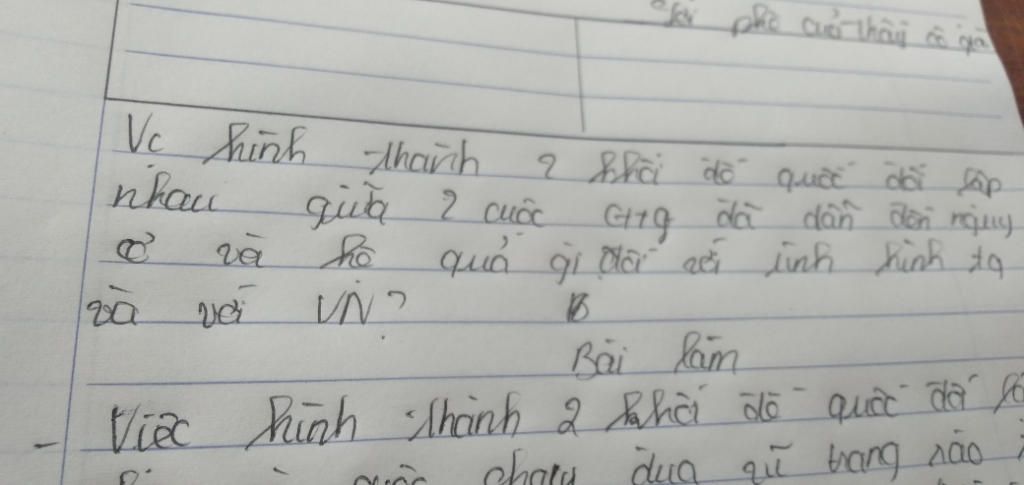 phê của thầy cô giá
Vc hình thành 2 khối đế quốc đối lập
nhau giữa 2 cuộc CTTG đã dẫn đến nguy
cơ và hệ quả gì đối với tình hình tg
và với VN?
Bài làm
- Việc hình thành 2 khối đế quốc đối
quốc chạy đua vũ trang vào